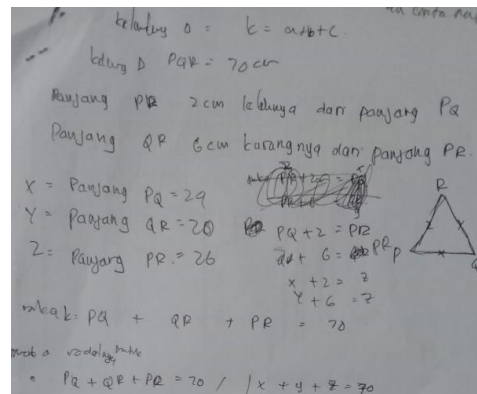 keliling Δ = k = a+b+c.
keliling Δ PQR = 70 cm
Panjang PR 2 cm lebihnya dari panjang PQ
Panjang QR 6 cm kurangnya dari panjang PR.
X = Panjang PQ = 24
Y = Panjang QR = 20
Z = Panjang PR = 26
PQ + 2 = PR
+ 6 = PR
x + 2 = z
Y + 6 = z
R
P
Q
maka k: PQ + QR + PR = 70
PQ + QR + PR = 70 / x + y + z = 70